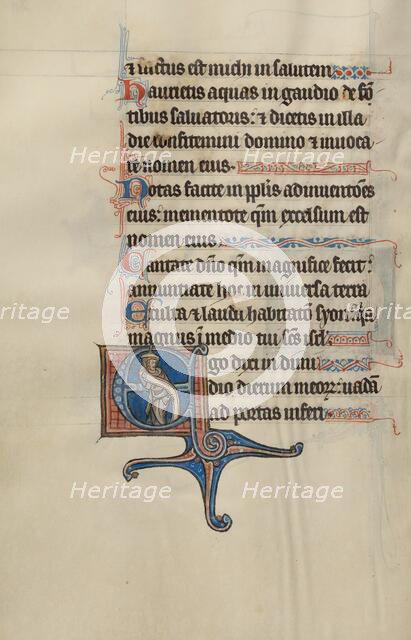 & factus est michi in salutem
Haurietis aquas in gaudio de fon
tibus saluatoris: & dicetis in illa
die confitemini domino & inuoca
te nomen eius.
Notas facite in pplis adinuentões
eius: mementote qm̃ excelsum est
nomen eius.
Cantate dño qm̃ magnifice fecit:
annuntiate hoc in uniuersa terra
Exulta & lauda habitatõ syon: q̃a
magnus ĩ medio tui scs̃ isrl
Ego dixi in dimi
dio dierum meorꝝ: uadã
ad portas inferi
Heritage
Heritage
Heritage
Heritage
Heritage
Heritage